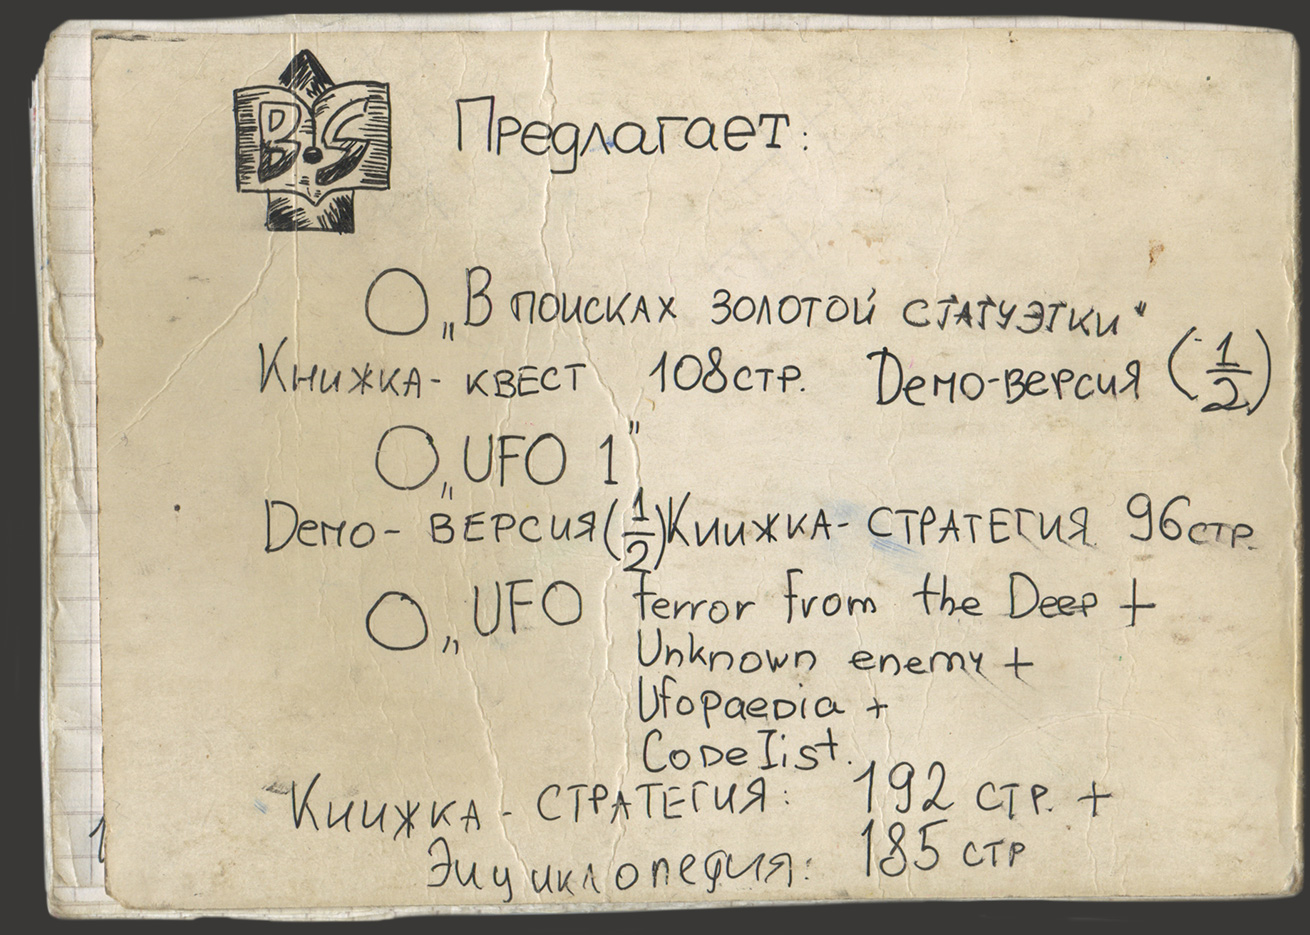 B.G Предлагает:
„В поисках золотой статуэтки"
Книжка-квест 108стр. Демо-версия (1/2)
„UFO 1"
Демо-версия(1/2)Книжка-стратегия 96стр.
„UFO Terror from the Deep +
Unknown enemy +
Ufopaedia +
Code list.
Книжка-стратегия: 192 стр. +
Энциклопедия: 185 стр